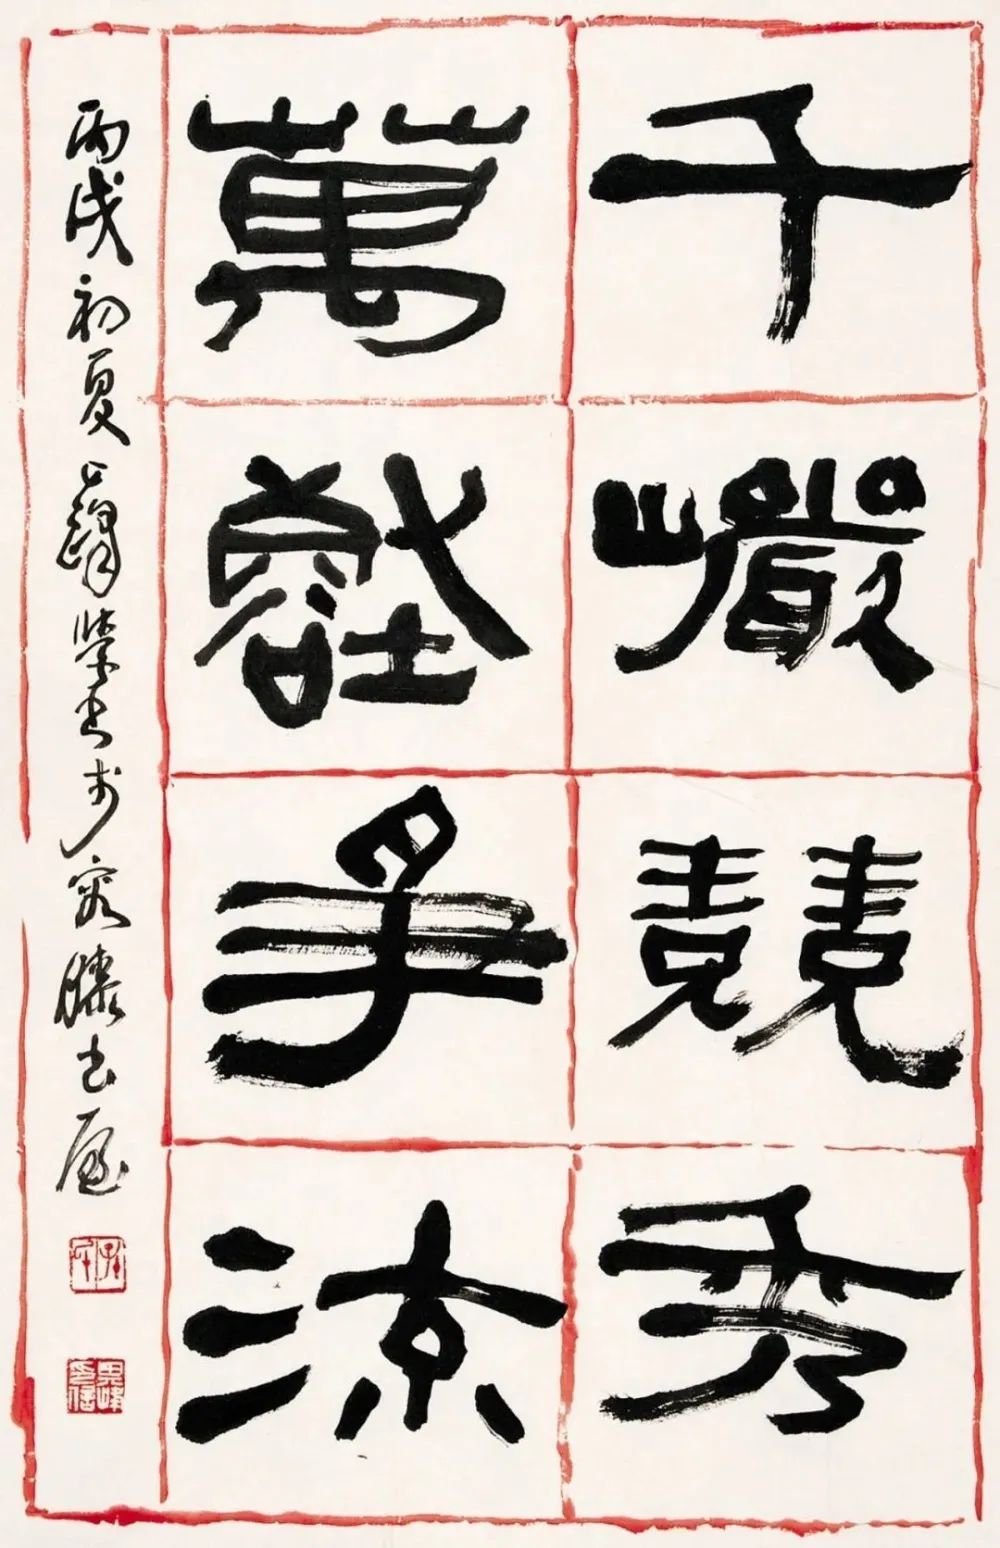 千巖競秀
萬壑爭流
丙戌初夏 書於容膝書屋